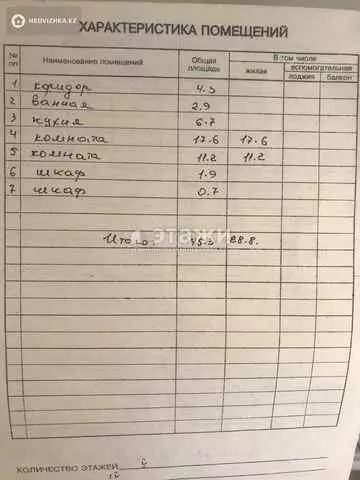 NEDVIZHKA.KZ
ХАРАКТЕРИСТИКА ПОМЕЩЕНИЙ
№ пп Наименование помещений Общая площадь В том числе
жилая вспомогательная
лоджия балкон
1 коридор 4.3
2 ванная 2.9
3 кухня 6.7
4 комната 17.6 17.6
5 комната 11.2 11.2
6 шкаф 1.9
7 шкаф 0.7
ЭТАЖИ
Итого: 45.3 28.8.
КОЛИЧЕСТВО ЭТАЖЕЙ